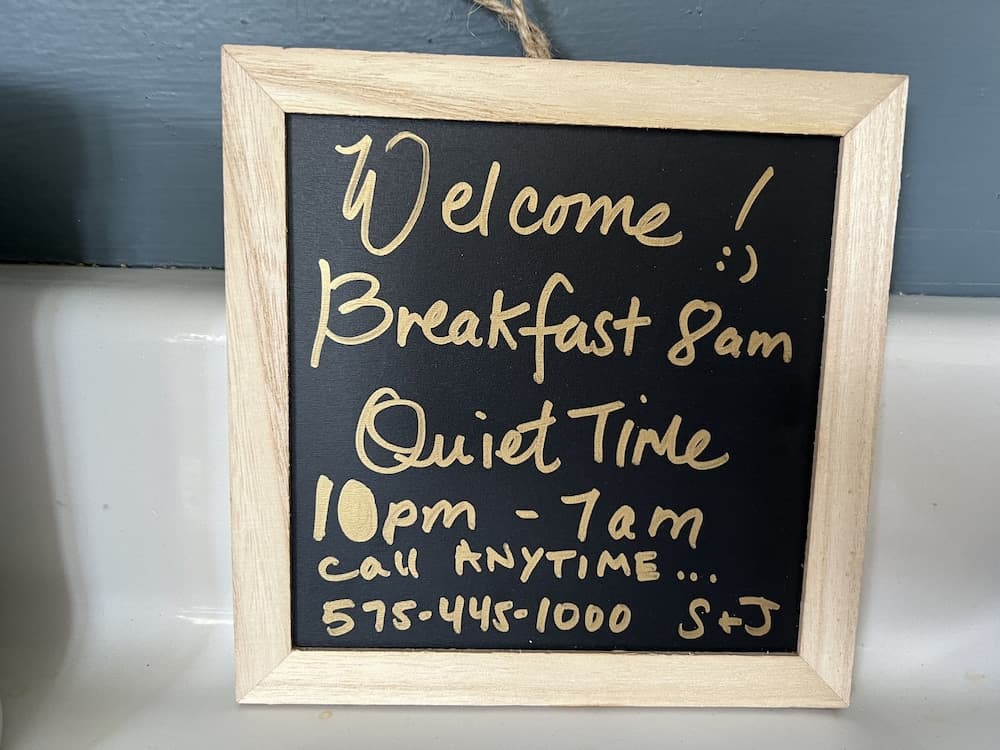 Welcome !
:)
Breakfast 8am
Quiet Time
10pm - 7am
call ANYTIME...
575-445-1000 S+J